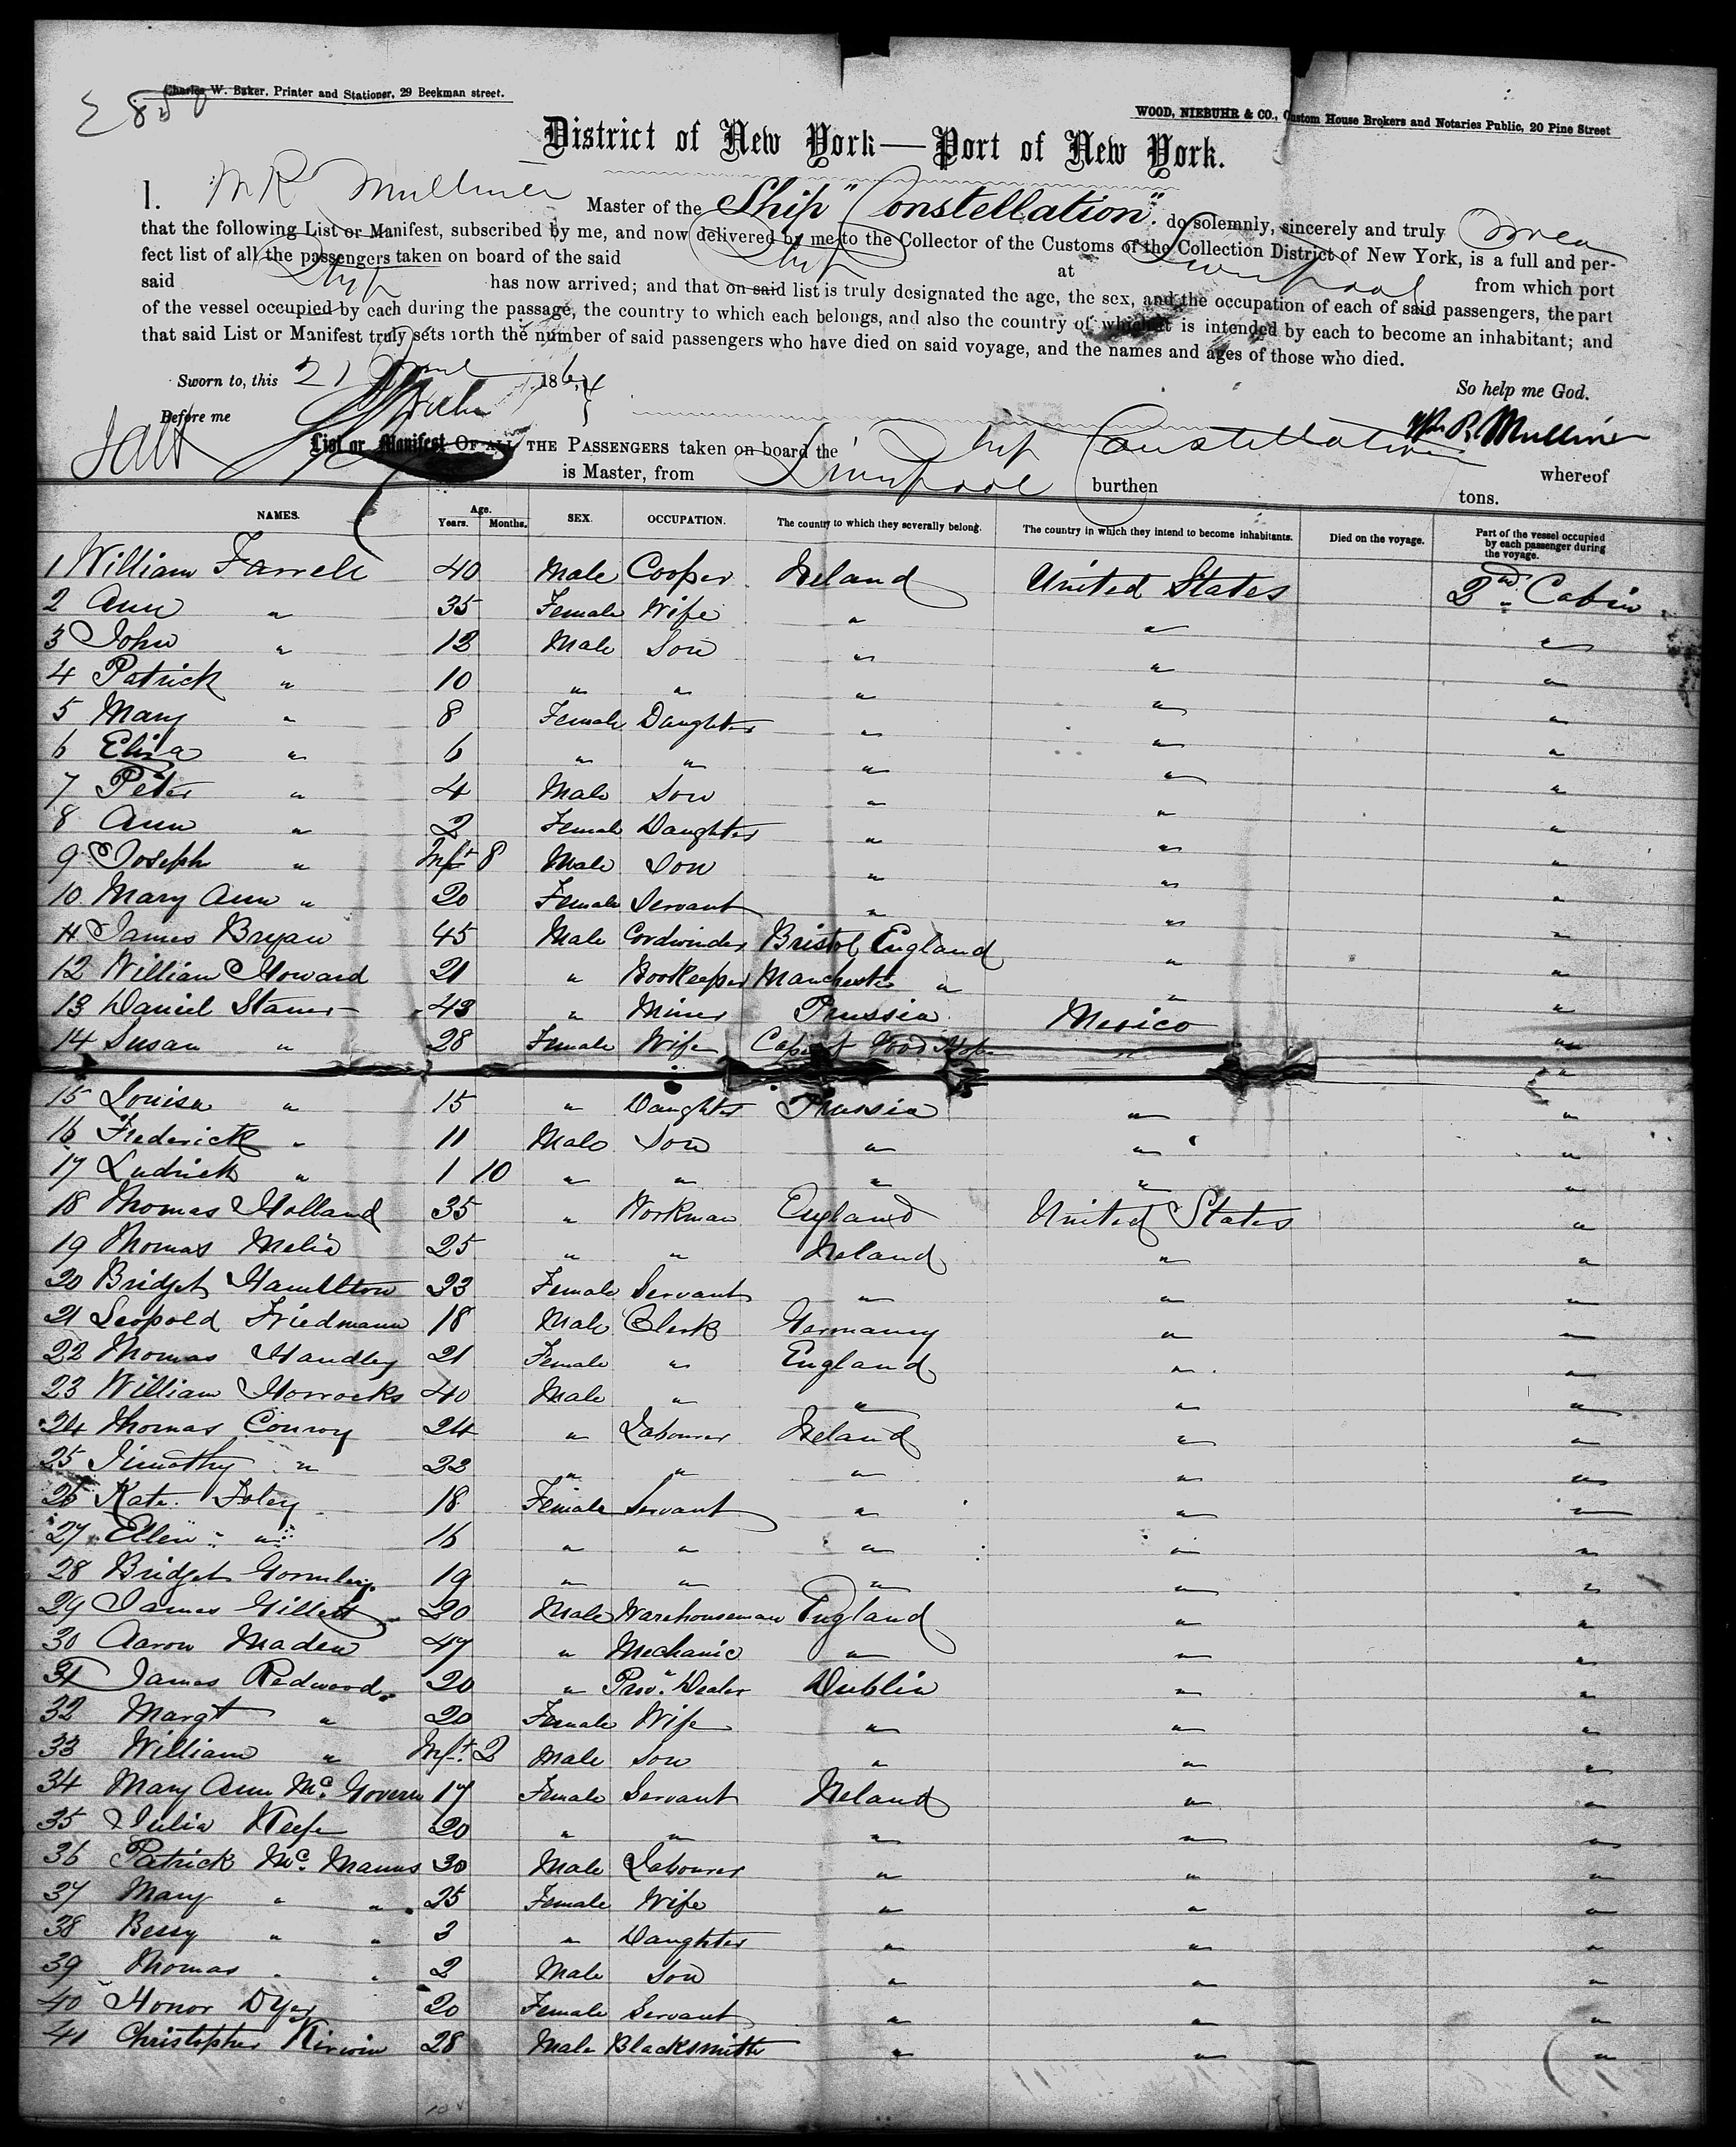 Charles W. Baker, Printer and Stationer, 29 Beekman street.
WOOD, NIEBUHR & CO., Custom House Brokers and Notaries Public, 20 Pine Street
District of New York—Port of New York.
I. Master of the Ship "Constellation" do solemnly, sincerely and truly Swear
that the following List or Manifest, subscribed by me, and now delivered by me to the Collector of the Customs of the Collection District of New York, is a full and per-
fect list of all the passengers taken on board of the said Ship at Liverpool from which port
said Ship has now arrived; and that on said list is truly designated the age, the sex, and the occupation of each of said passengers, the part
of the vessel occupied by each during the passage, the country to which each belongs, and also the country of which it is intended by each to become an inhabitant; and
that said List or Manifest truly sets forth the number of said passengers who have died on said voyage, and the names and ages of those who died.
Sworn to, this 21 186 So help me God.
Before me Wm R. Mulliner
List or Manifest OF ALL THE PASSENGERS taken on board the Ship Constellation whereof
is Master, from Liverpool burthen tons.
NAMES. Age. Years. Months. SEX. OCCUPATION. The country to which they severally belong. The country in which they intend to become inhabitants. Died on the voyage. Part of the vessel occupied by each passenger during the voyage.
1 William Farrell 40 Male Cooper Ireland United States 2nd Cabin
2 Ann " 35 Female Wife " " "
3 John " 12 Male Son " " "
4 Patrick " 10 " " " " "
5 Mary " 8 Female Daughter " " "
6 Eliza " 6 " " " " "
7 Peter " 4 Male Son " " "
8 Ann " 2 Female Daughter " " "
9 Joseph " Inft 8 Male Son " " "
10 Mary Ann " 20 Female Servant " " "
11 James Bryan 45 Male Cordwinder Bristol England " "
12 William Howard 21 " Bookeeper Manchester " " "
13 Daniel Stamer 43 " Miner Prussia Mexico "
14 Susan " 28 Female Wife Cape of Good Hope " "
15 Louisa " 15 " Daughter Prussia " "
16 Frederick " 11 Male Son " " "
17 Ludrick " 1 10 " " " " "
18 Thomas Holland 35 " Workman England United States "
19 Thomas Melia 25 " " Ireland " "
20 Bridget Hamilton 23 Female Servant " " "
21 Leopold Friedmann 18 Male Clerk Germany " "
22 Thomas Handley 21 Female " England " "
23 William Horrocks 40 Male " " " "
24 Thomas Conroy 24 " Labourer Ireland " "
25 Timothy " 22 " " " " "
26 Kate Foley 18 Female Servant " " "
27 Ellen " 16 " " " " "
28 Bridget Gormley 19 " " " " "
29 James Gillett 20 Male Warehouseman England " "
30 Aaron Maden 47 " Mechanic " " "
31 James Redwood 20 " Prov. Dealer Dublin " "
32 Margt " 20 Female Wife " " "
33 William " Inft. 2 Male Son " " "
34 Mary Ann Mc. Govern 17 Female Servant Ireland " "
35 Julia Keefe 20 " " " " "
36 Patrick Mc. Manus 30 Male Labourer " " "
37 Mary " " 25 Female Wife " " "
38 Bessy " " 3 " Daughter " " "
39 Thomas " " 2 Male Son " " "
40 Honor Dyer 20 Female Servant " " "
41 Christopher Kirwin 28 Male Blacksmith " " "